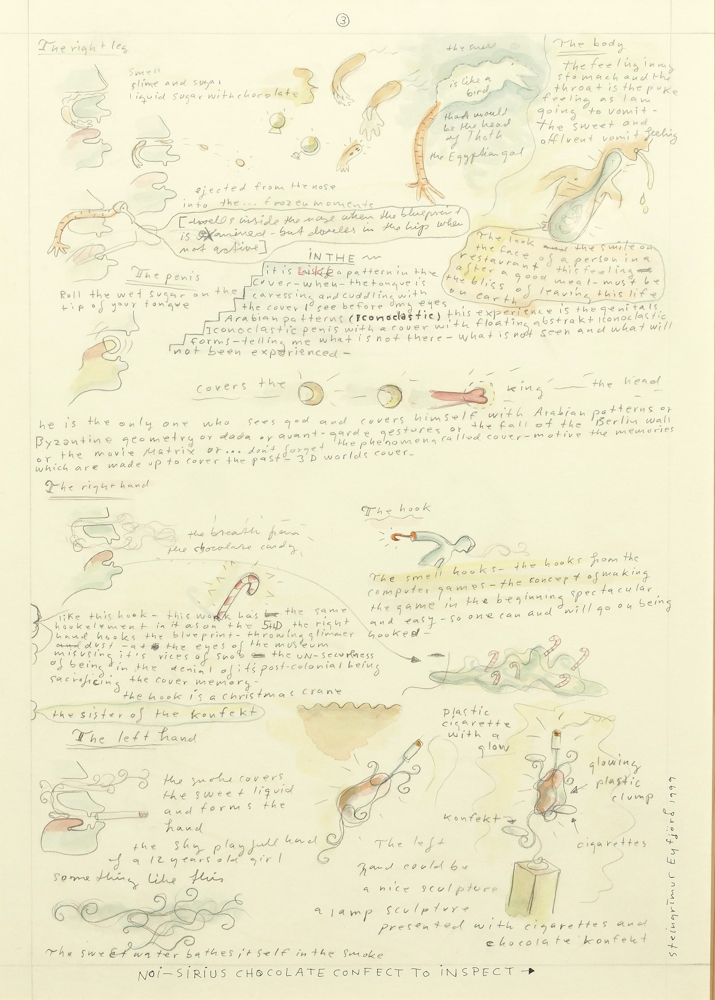 3
The right leg
Smell
slime and sugar
liquid sugar with chocolate
the
is like a
bird
that would
be the head
of Thoth
the Egyptian god
The body
The feeling in my
stomach and the
throat is the puke
feeling as I am
going to vomit -
The sweet and
offluent vomit feeling
ejected from the nose
into the... frozen moments
[dwells inside the nose when the blueprint
is examined - but dwells in the hip when
not active]
The look and the smile on
the face of a person in a
restaurant this feeling
after a good meal - must be
the bliss of leaving this life
on earth
The penis
Roll the wet sugar on the
tip of your tongue
IN THE
it is LIKE a pattern in the
cover - when - the tongue is
caressing and cuddling with
the cover I see before my eyes
Arabian patterns (Iconoclastic) this experience is the genitals
Iconoclastic penis with a cover with floating abstrakt Iconoclastic
forms - telling me what is not there - what is not seen and what will
not been experienced -
covers the
being
the head
he is the only one who sees god and covers himself with Arabian patterns or
Byzantine geometry or dada or avant-garde gestures or the fall of the Berlin wall
or the movie Matrix or... don't forget the phenomena called cover - motive the memories
which are made up to cover the past - 3D worlds cover -
The right hand
the breath from
the chocolate candy
The hook
The smell hooks - the hooks from the
computer games - the concept of making
the game in the beginning spectacular
and easy - so one can and will go on being
hooked -
like this hook - this work has the same
hook element in it as on the the right
hand hooks the blueprint - throwing glimmer
dust - at the eyes of the museum
misusing it's vices of snob the un-secureness
of being in the denial of its post-colonial being
sacrificing the cover memory -
the hook is a christmas crane
the sister of the konfekt
The left hand
the smoke covers
the sweet liquid
and forms the
hand
the shy playfull hand
of a 12 years old girl
something like this
The sweet water bathes itself in the smoke
plastic
cigarette
with a
glow
glowing
plastic
clump
konfekt
cigarettes
The left
hand could be
a nice sculpture
a lamp sculpture
presented with cigarettes and
chocolate konfekt
steingrimur Eyfjord 1999
NOI-SIRIUS CHOCOLATE CONFECT TO INSPECT →